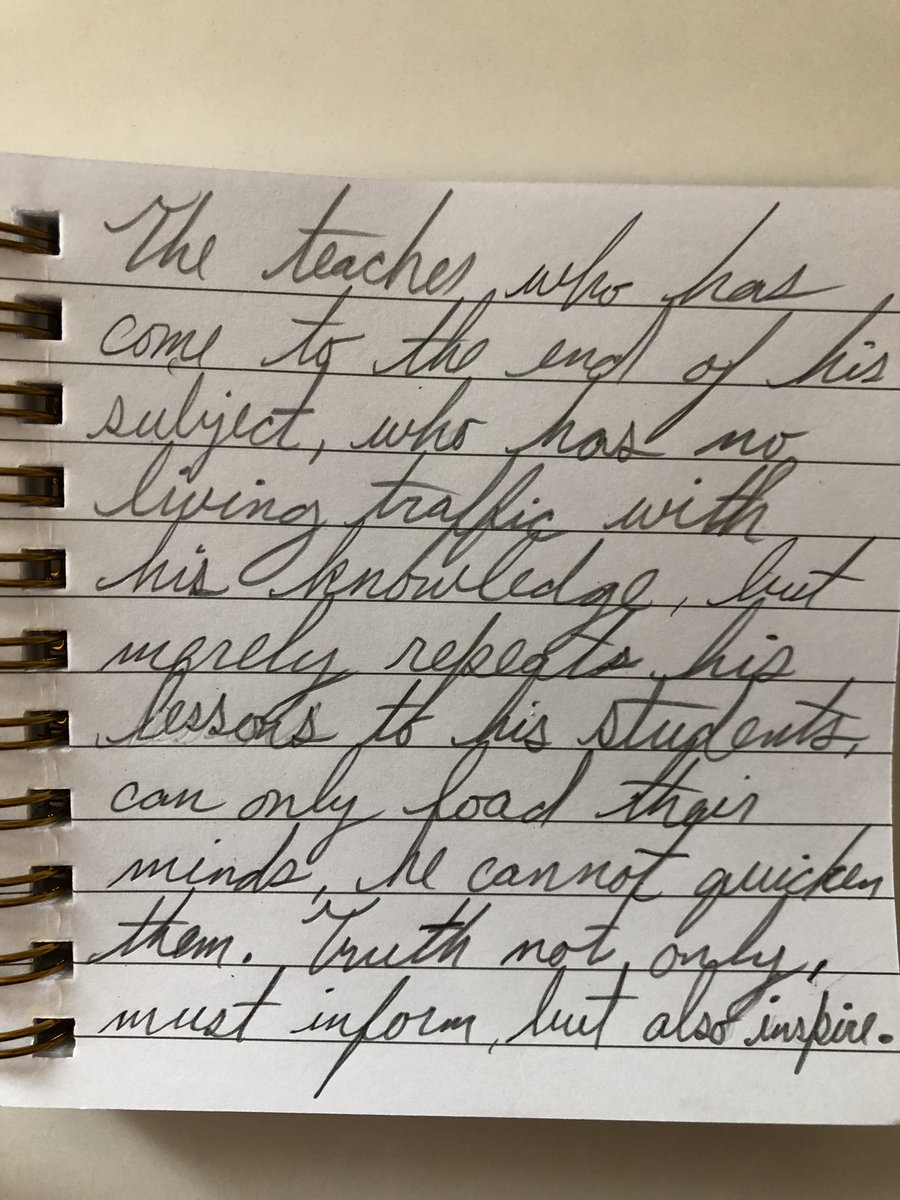 The teacher who has
come to the end of his
subject, who has no
living traffic with
his knowledge, but
merely repeats his
lessons to his students,
can only load their
minds, he cannot quicken
them. Truth not only,
must inform, but also inspire.